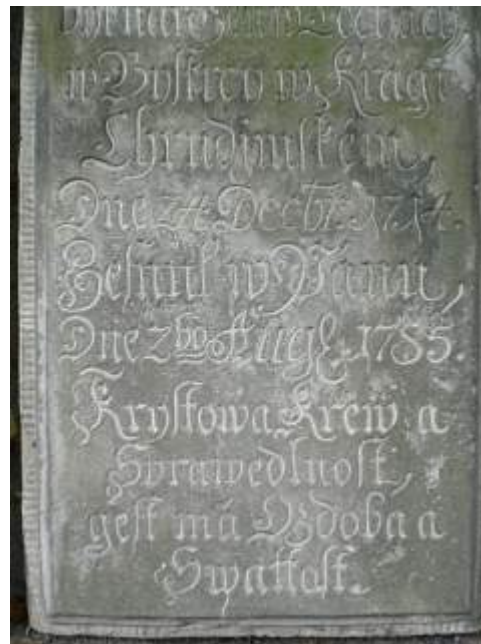 w Bystrey w Kragi
Chrudimském,
Dne 24. Decbr. 1714.
Zesnul w Panu,
Dne 2ho Augt. 1785.
Krystowa Krew a
Sprawedlnost,
gest má Ozdoba a
Swatost.